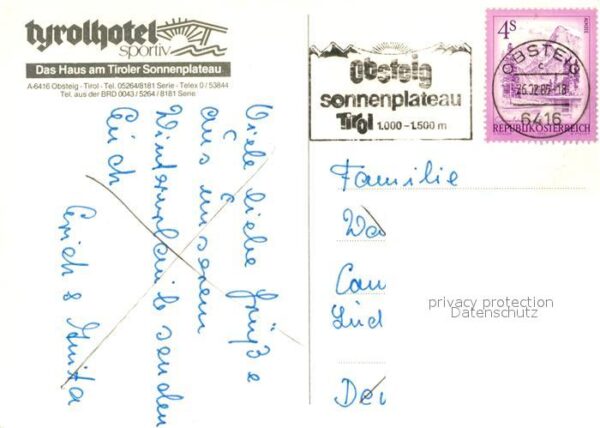 tyrolhotel
sportiv
Das Haus am Tiroler Sonnenplateau
A-6416 Obsteig · Tirol · Tel. 05264/8181 Serie - Telex 0 / 53844
Tel. aus der BRD 0043 / 5264 / 8181 Serie
Viele liebe Grüße
aus unserem
Winterurlaub senden
Euch
Erich & Anita
Obsteig
sonnenplateau
Tirol 1.000 - 1.500 m
4S
REPUBLIK ÖSTERREICH
OBSTEIG
c
6416
Familie
Wa
Cam
Lüd
privacy protection
Datenschutz